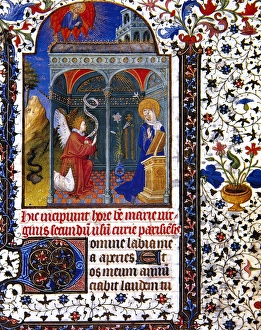 Hic incipiunt hore bē marie uir
ginis secundū usū curie parisiēsis
Domine labia me
a aperies. Et
os meum annū
ciabit laudem tu